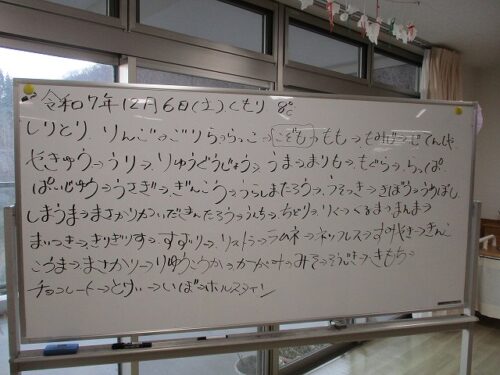 令和7年12月6日(土)くもり 8℃
しりとり、りんご→ごりら→らっこ→こども→もも→もみじ→じてんしゃ
やきゅう→うり→りゅうぐうじょう→うま→まり→もぐら→らっぱ
ぱいじゅう→うさぎ→ぎんこう→うらしまたろう→うそつき→きぼう→うめぼし
しまうま→まさかりかついだきんたろう→うんち→ちどり→りく→くるま→まんま→
まいつき→きりぎりす→すずり→リストラ→ラムネ→ネックレス→すみやき→きんこ
こうま→まさかり→りゅうこうか→かがみ→みそ→そうじき→きもち→
チョコレート→とけい→いぼ→ホルスタイン